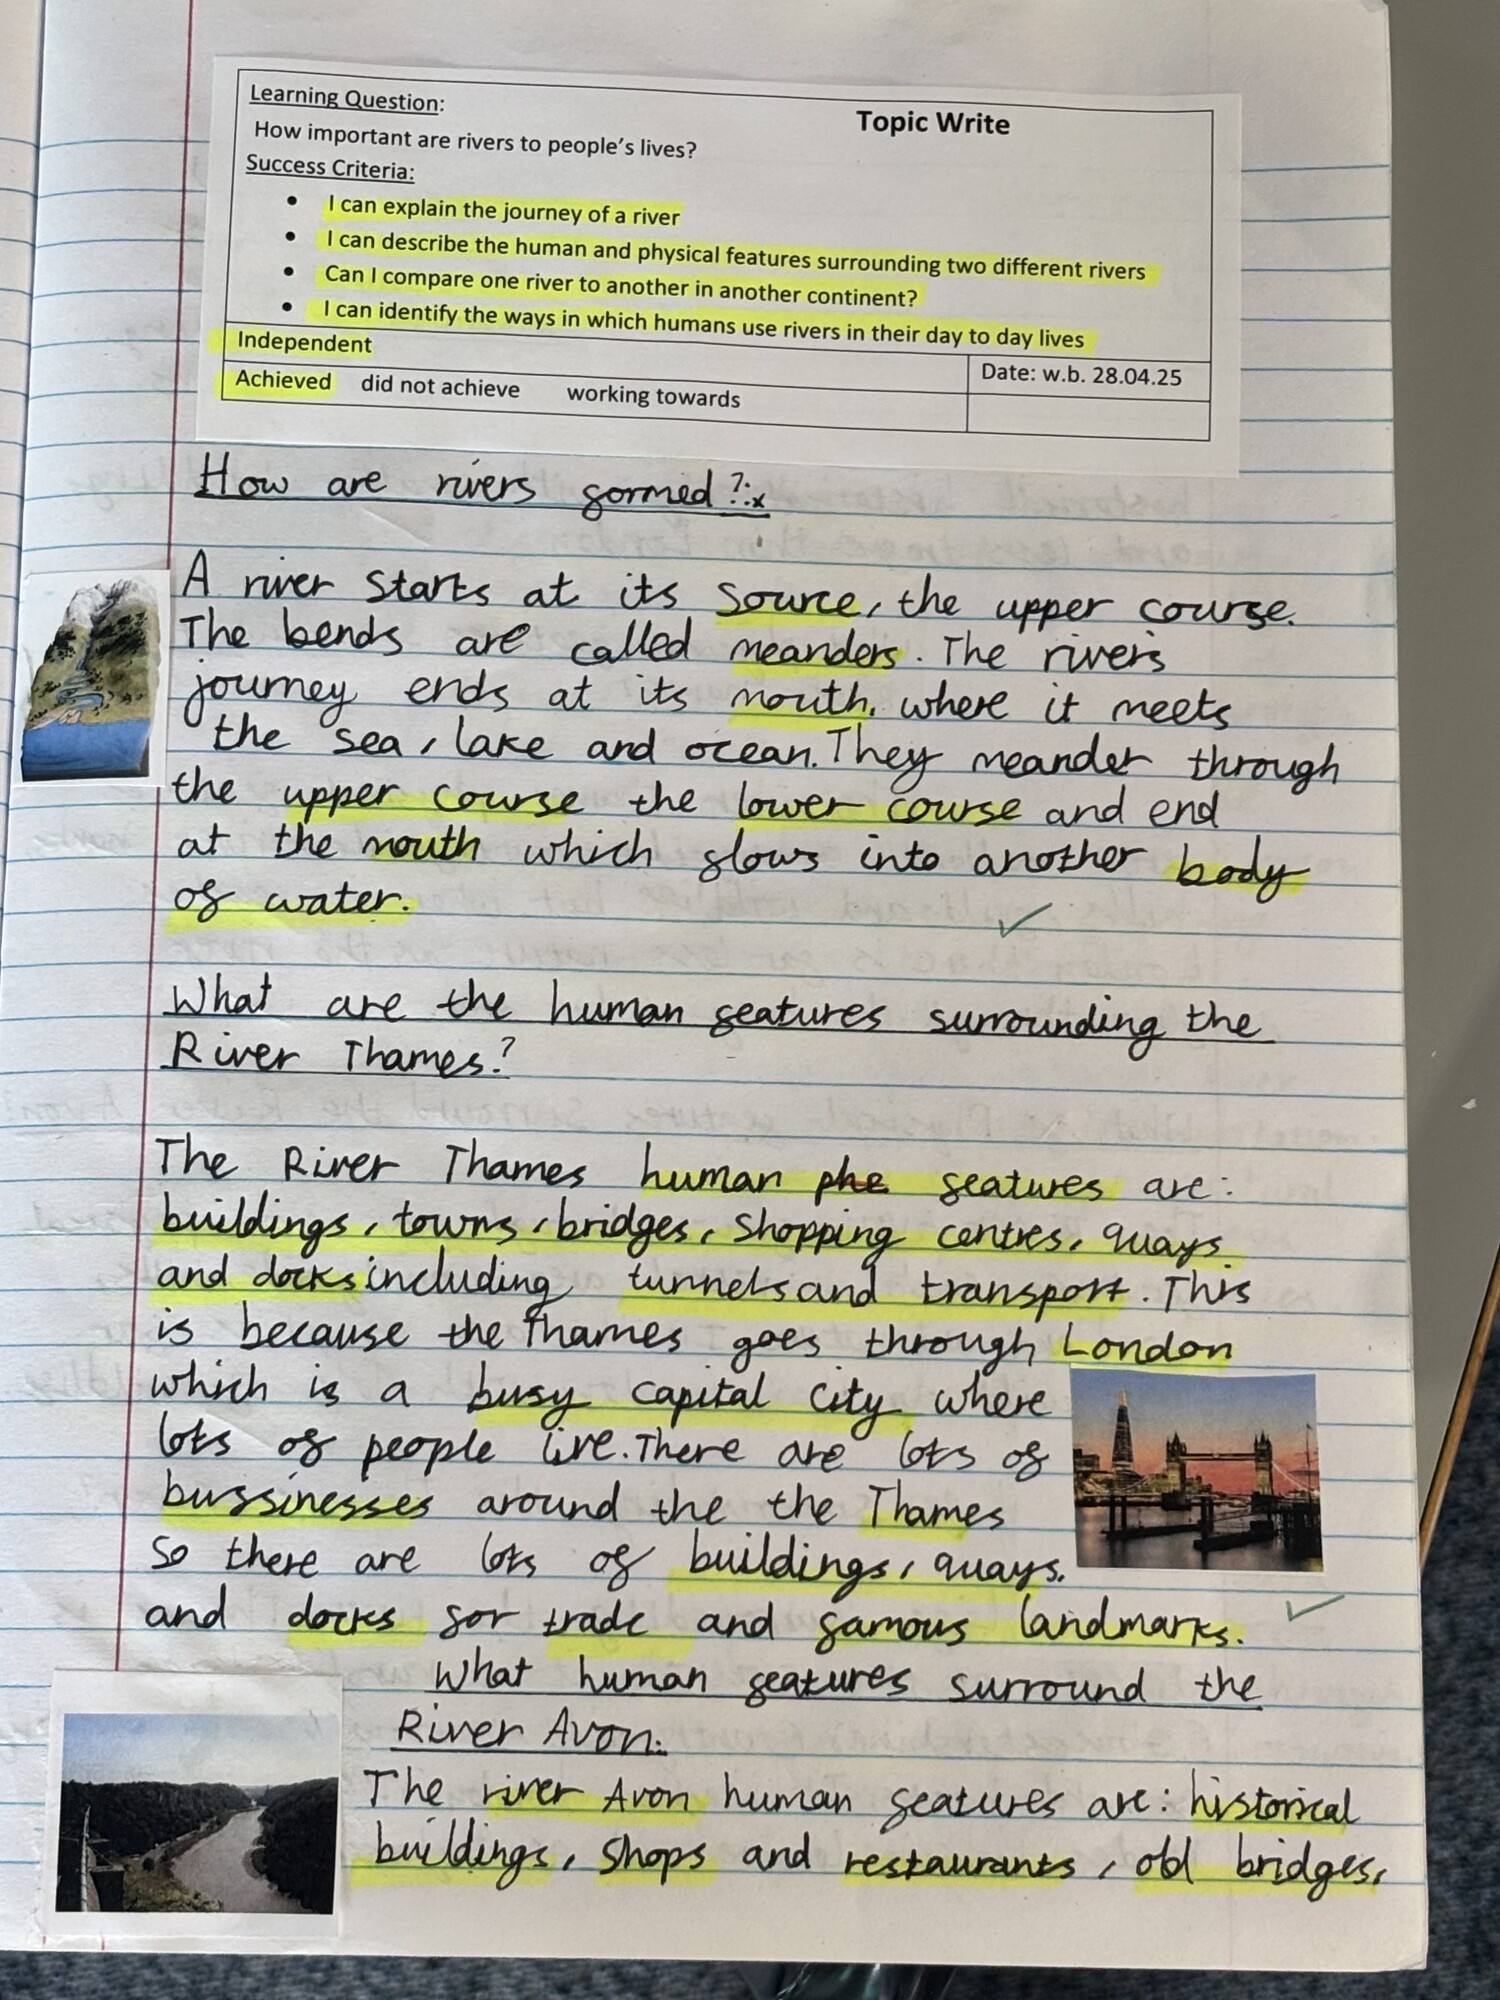 Learning Question:
Topic Write
How important are rivers to people's lives?
Success Criteria:
• I can explain the journey of a river
• I can describe the human and physical features surrounding two different rivers
• Can I compare one river to another in another continent?
• I can identify the ways in which humans use rivers in their day to day lives
Independent
Date: w.b. 28.04.25
Achieved did not achieve working towards
How are rivers formed?:
A river starts at its source, the upper course.
The bends are called meanders. The rivers
journey ends at its mouth, where it meets
the sea, lake and ocean. They meander through
the upper course the lower course and end
at the mouth which flows into another body
of water.
What are the human features surrounding the
River Thames?
The River Thames human phe features are:
buildings, towns, bridges, shopping centres, quays
and docks including tunnels and transport. This
is because the Thames goes through London
which is a busy capital city where
lots of people live. There are lots of
bussinesses around the the Thames
so there are lots of buildings, quays,
and docks for trade and famous landmarks.
What human features surround the
River Avon:
The river Avon human features are: historical
buildings, shops and restaurants, old bridges,